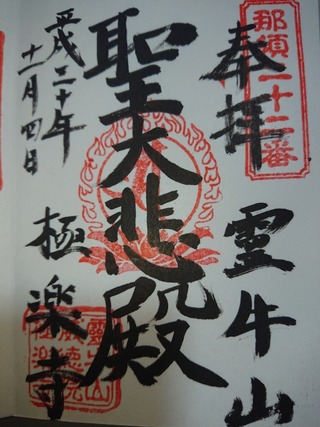 那須二十二番
奉拝
霊牛山
聖大悲殿
平成二十年
十一月四日
極楽寺